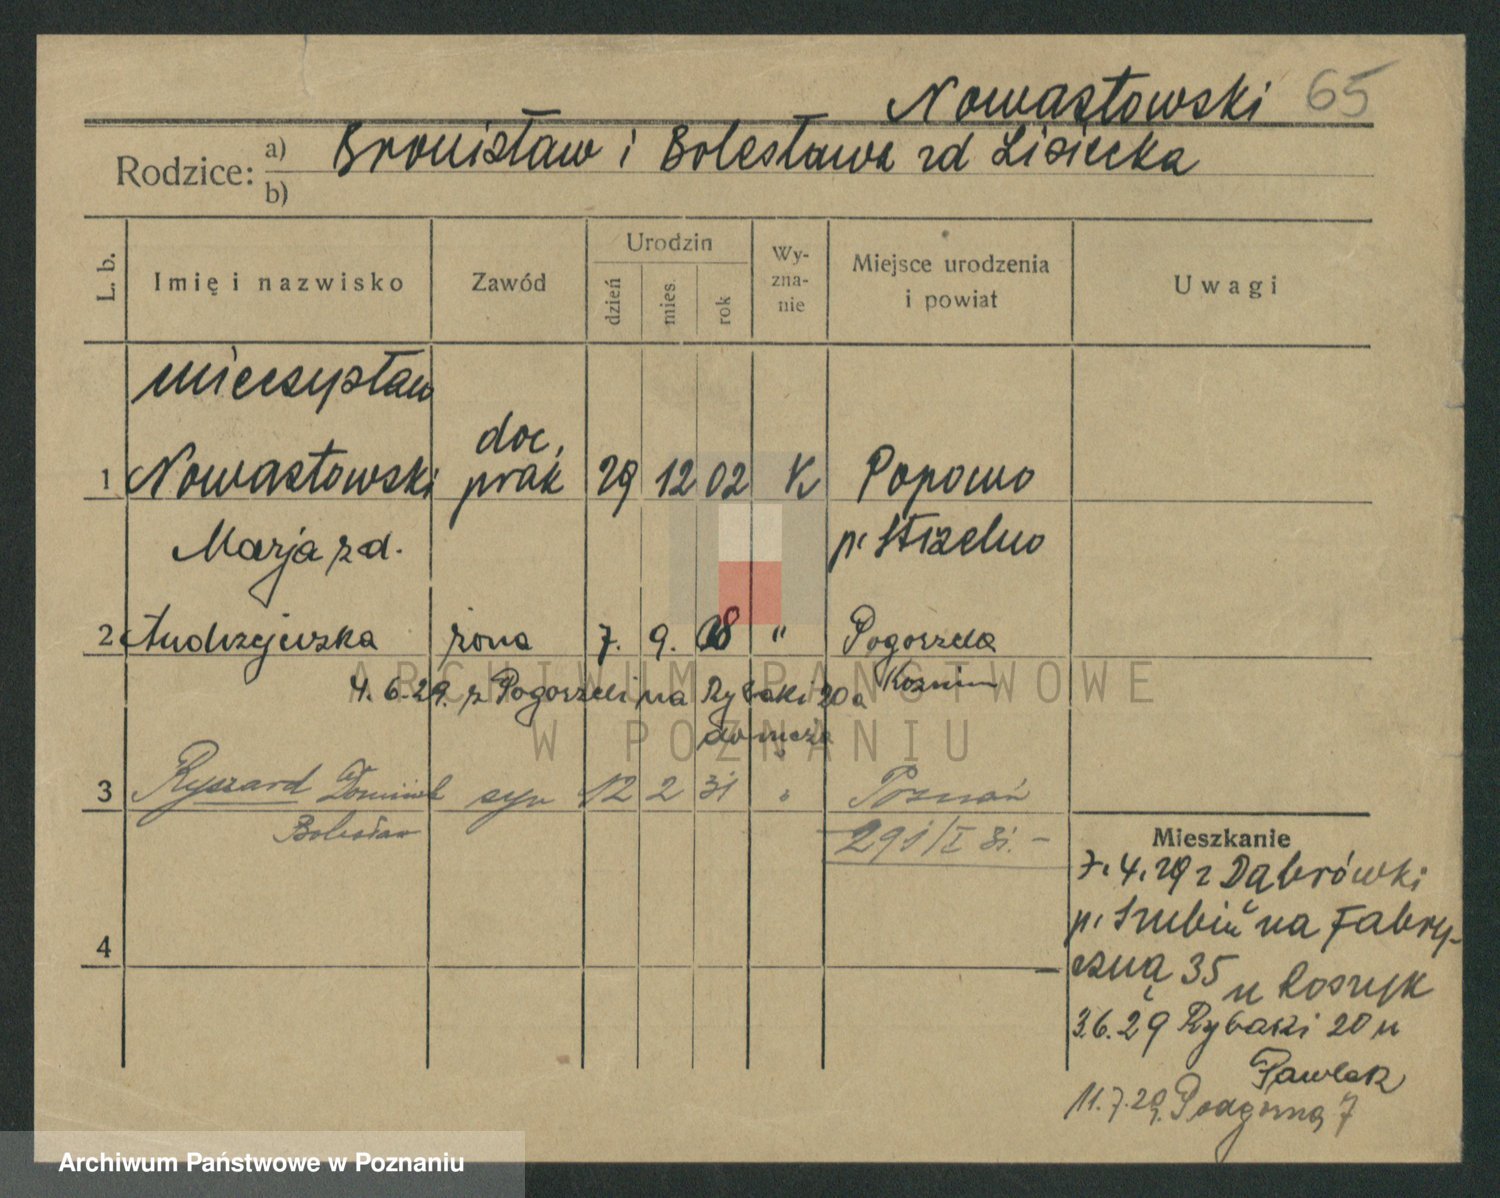 Nowastowski 65
Rodzice: a) Bronisław i Bolesława zd Lisiecka
b)
L. b.
Imię i nazwisko
Zawód
Urodzin
dzień
mies.
rok
Wy-
zna-
nie
Miejsce urodzenia
i powiat
Uwagi
Mieczysław
doc.
1 Nowastowski prak 29 12 02 K Popowo
Marja zd. p. Strzelno
2 Andrzejewska żona 7. 9. 08 " Pogorzela
4.6.29. z Pogorzeli na Rybaki 20a Koźmin
3 Ryszard Dominik syn 12 2 31 " Poznań
Bolesław 291/I 31.-
4
Mieszkanie
7.4.29 z Dąbrówki
p. Szubin na Fabry-
czną 35 u Koszyk
3.6.29 Rybaki 20 u
Pawlak
11.7.29. Podgórną 7
ARCHIWUM PAŃSTWOWE
W POZNANIU
Archiwum Państwowe w Poznaniu